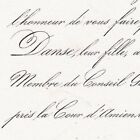 l'honneur de vous faire
Danse, leur fille, a
Membre du Conseil
près la Cour d'Union